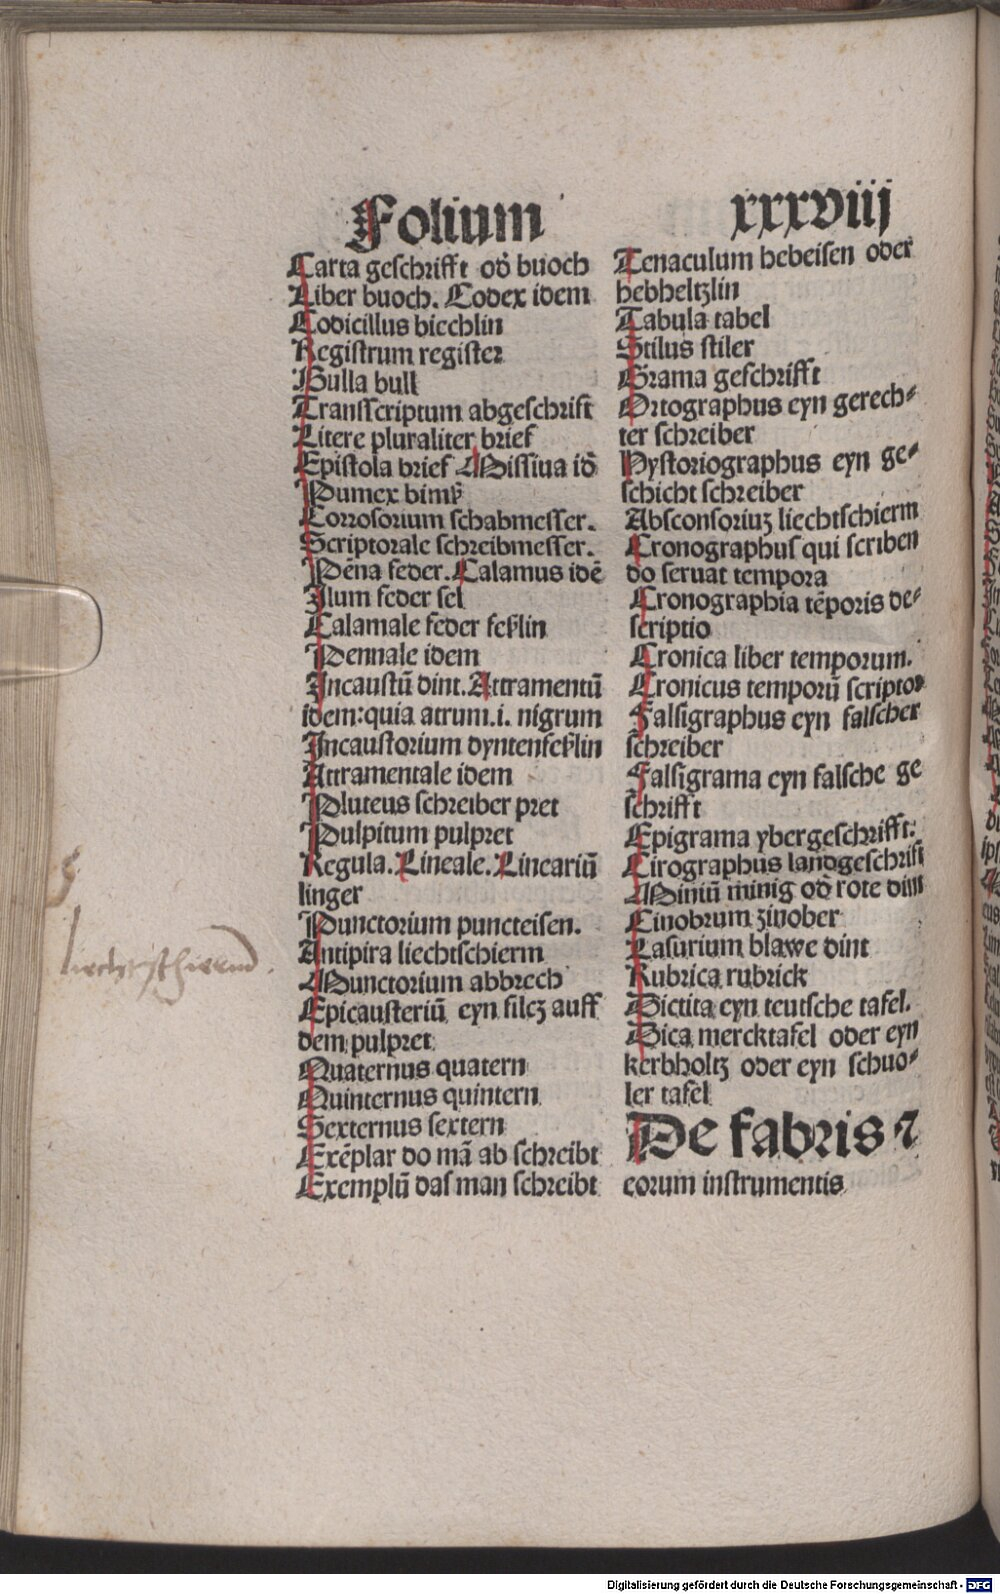 Folium xxxviij
Carta geschrifft od̄ buoch
Liber buoch. Codex idem
Codicillus biechlin
Registrum register
Bulla bull
Transscriptum abgeschrift
Litere pluraliter brief
Epistola brief Missiua id̄
Pumex bimß
Corrosorium schabmesser.
Scriptorale schreibmesser.
Pēna feder. Calamus idē
Ilum feder sel
Calamale feder feßlin
Pennale idem
Incaustū dint. Attramentū
idem: quia atrum .i. nigrum
Incaustorium dyntenfeßlin
Attramentale idem
Pluteus schreiber pret
Pulpitum pulpret
Regula. Lineale. Lineariū
linger
Punctorium puncteisen.
Antipira liechtschierm
Munctorium abbrech
Epicausteriū eyn filcz auff
dem pulpret
Quaternus quatern
Quinternus quintern
Sexternus sextern
Exēplar do mā ab schreibt
Exemplū das man schreibt
Tenaculum hebeisen oder
hebheltzlin
Tabula tabel
Stilus stiler
Grama geschrifft
Ortographus eyn gerech-
ter schreiber
Hystoriographus eyn ge-
schicht schreiber
Absconsoriuz liechtschierm
Cronographus qui scriben
do seruat tempora
Cronographia tēporis de-
scriptio
Cronica liber temporum.
Cronicus temporū scriptor
Falsigraphus eyn falscher
schreiber
Falsigrama eyn falsche ge
schrifft
Epigrama ybergeschrifft.
Cirographus landgeschrift
Miniū minig od̄ rote dint
Cinobrum zinober
Lasurium blawe dint
Rubrica rubrick
Dictita eyn teutsche tafel.
Dica mercktafel oder eyn
kerbholtz oder eyn schuo-
ler tafel
De fabris ⁊
eorum instrumentis
Digitalisierung gefördert durch die Deutsche Forschungsgemeinschaft - DFG